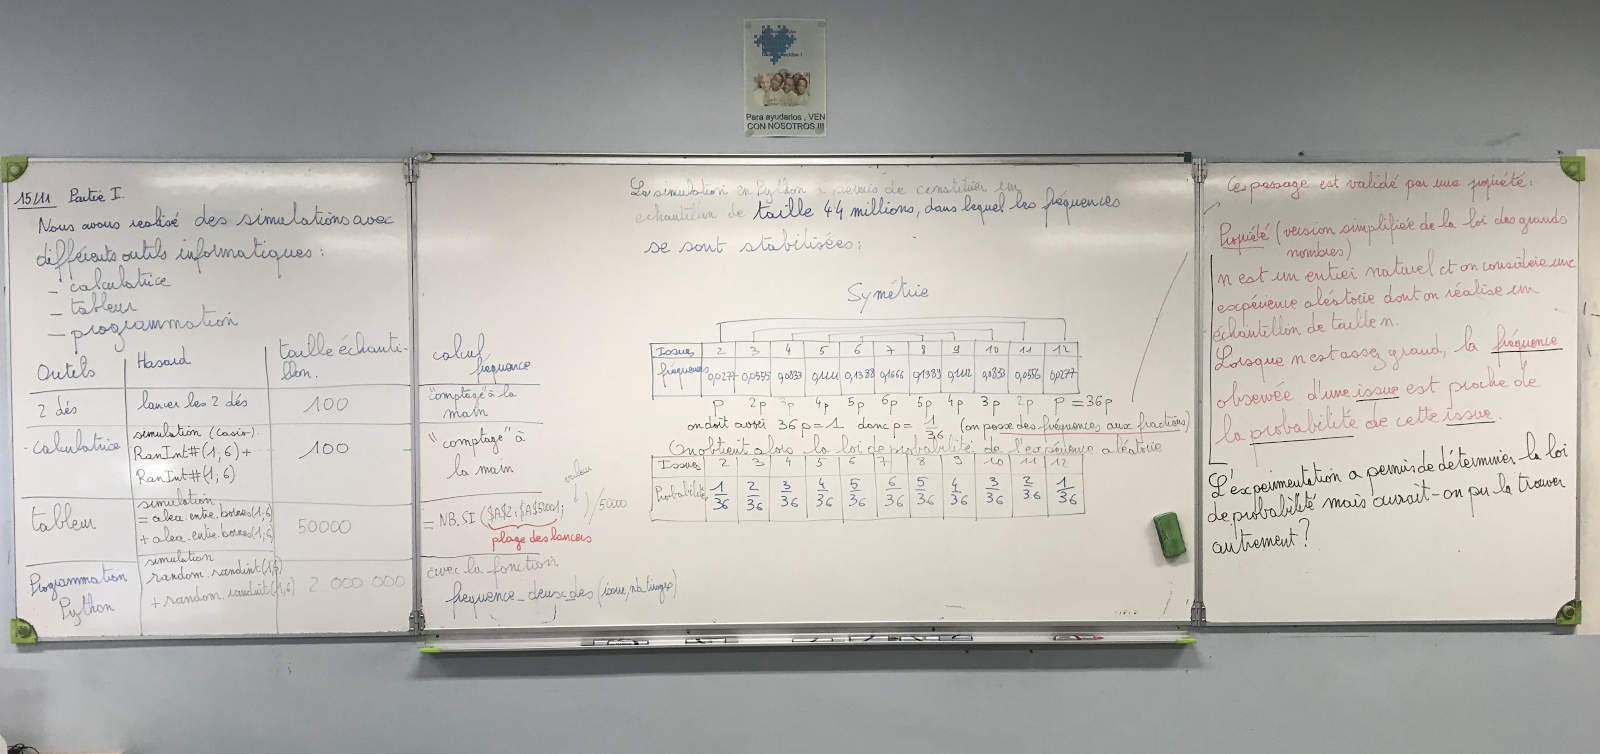 Para ayudarlos , VEN
CON NOSOTROS !!!
15/11 Partie I.
Nous avons réalisé des simulations avec
différents outils informatiques :
- calculatrice
- tableur
- programmation
Outils Hasard taille échanti-
llon. calcul
fréquence
2 dés lancer les 2 dés 100 "comptage" à la
main
calculatrice simulation (Casio)
RanInt#(1,6) +
RanInt#(1;6) 100 "comptage" à
la main
tableur simulation
= alea.entre.bornes(1;6)
+ alea.entre.bornes(1;6) 50000 = NB.SI($A$2:$A$5001; )/5000
valeur
plage des lancers
Programmation
Python simulation
random.randint(1,6)
+ random.randint(1,6) 2 000 000 avec la fonction
frequence_deux_des (issue, nb tirages)
La simulation en Python a permis de constituer un
échantillon de taille 44 millions, dans lequel les fréquences
se sont stabilisées :
Symétrie
Issues 2 3 4 5 6 7 8 9 10 11 12
fréquences 0,0277 0,0555 0,0833 0,111 0,1388 0,1666 0,1389 0,1112 0,0833 0,0556 0,0277
p 2p 3p 4p 5p 6p 5p 4p 3p 2p p = 36p
on doit avoir 36p = 1 donc p = 1/36 (on passe des fréquences aux fractions)
On obtient alors la loi de probabilité de l'expérience aléatoire
Issues 2 3 4 5 6 7 8 9 10 11 12
Probabilités 1/36 2/36 3/36 4/36 5/36 6/36 5/36 4/36 3/36 2/36 1/36
Ce passage est validé par une propriété :
Propriété (version simplifiée de la loi des grands
nombres)
n est un entier naturel et on considère une
expérience aléatoire dont on réalise un
échantillon de taille n.
Lorsque n est assez grand, la fréquence
observée d'une issue est proche de
la probabilité de cette issue.
L'expérimentation a permis de déterminer la loi
de probabilité mais aurait-on pu la trouver
autrement ?